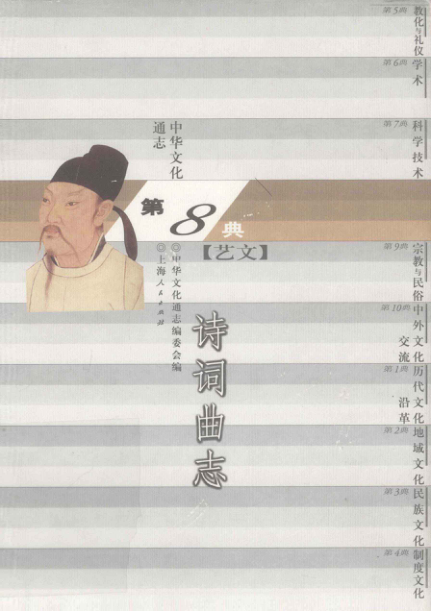 第5典
教化与礼仪
第6典
学术
第7典
科学技术
中华文化
通志
第8典
【艺文】
中华文化通志编委会编
上海人民出版社
诗词曲志
第9典
宗教与民俗
第10典
中外文化
交流
第1典
历代文化
沿革
第2典
地域文化
第3典
民族文化
第4典
制度文化